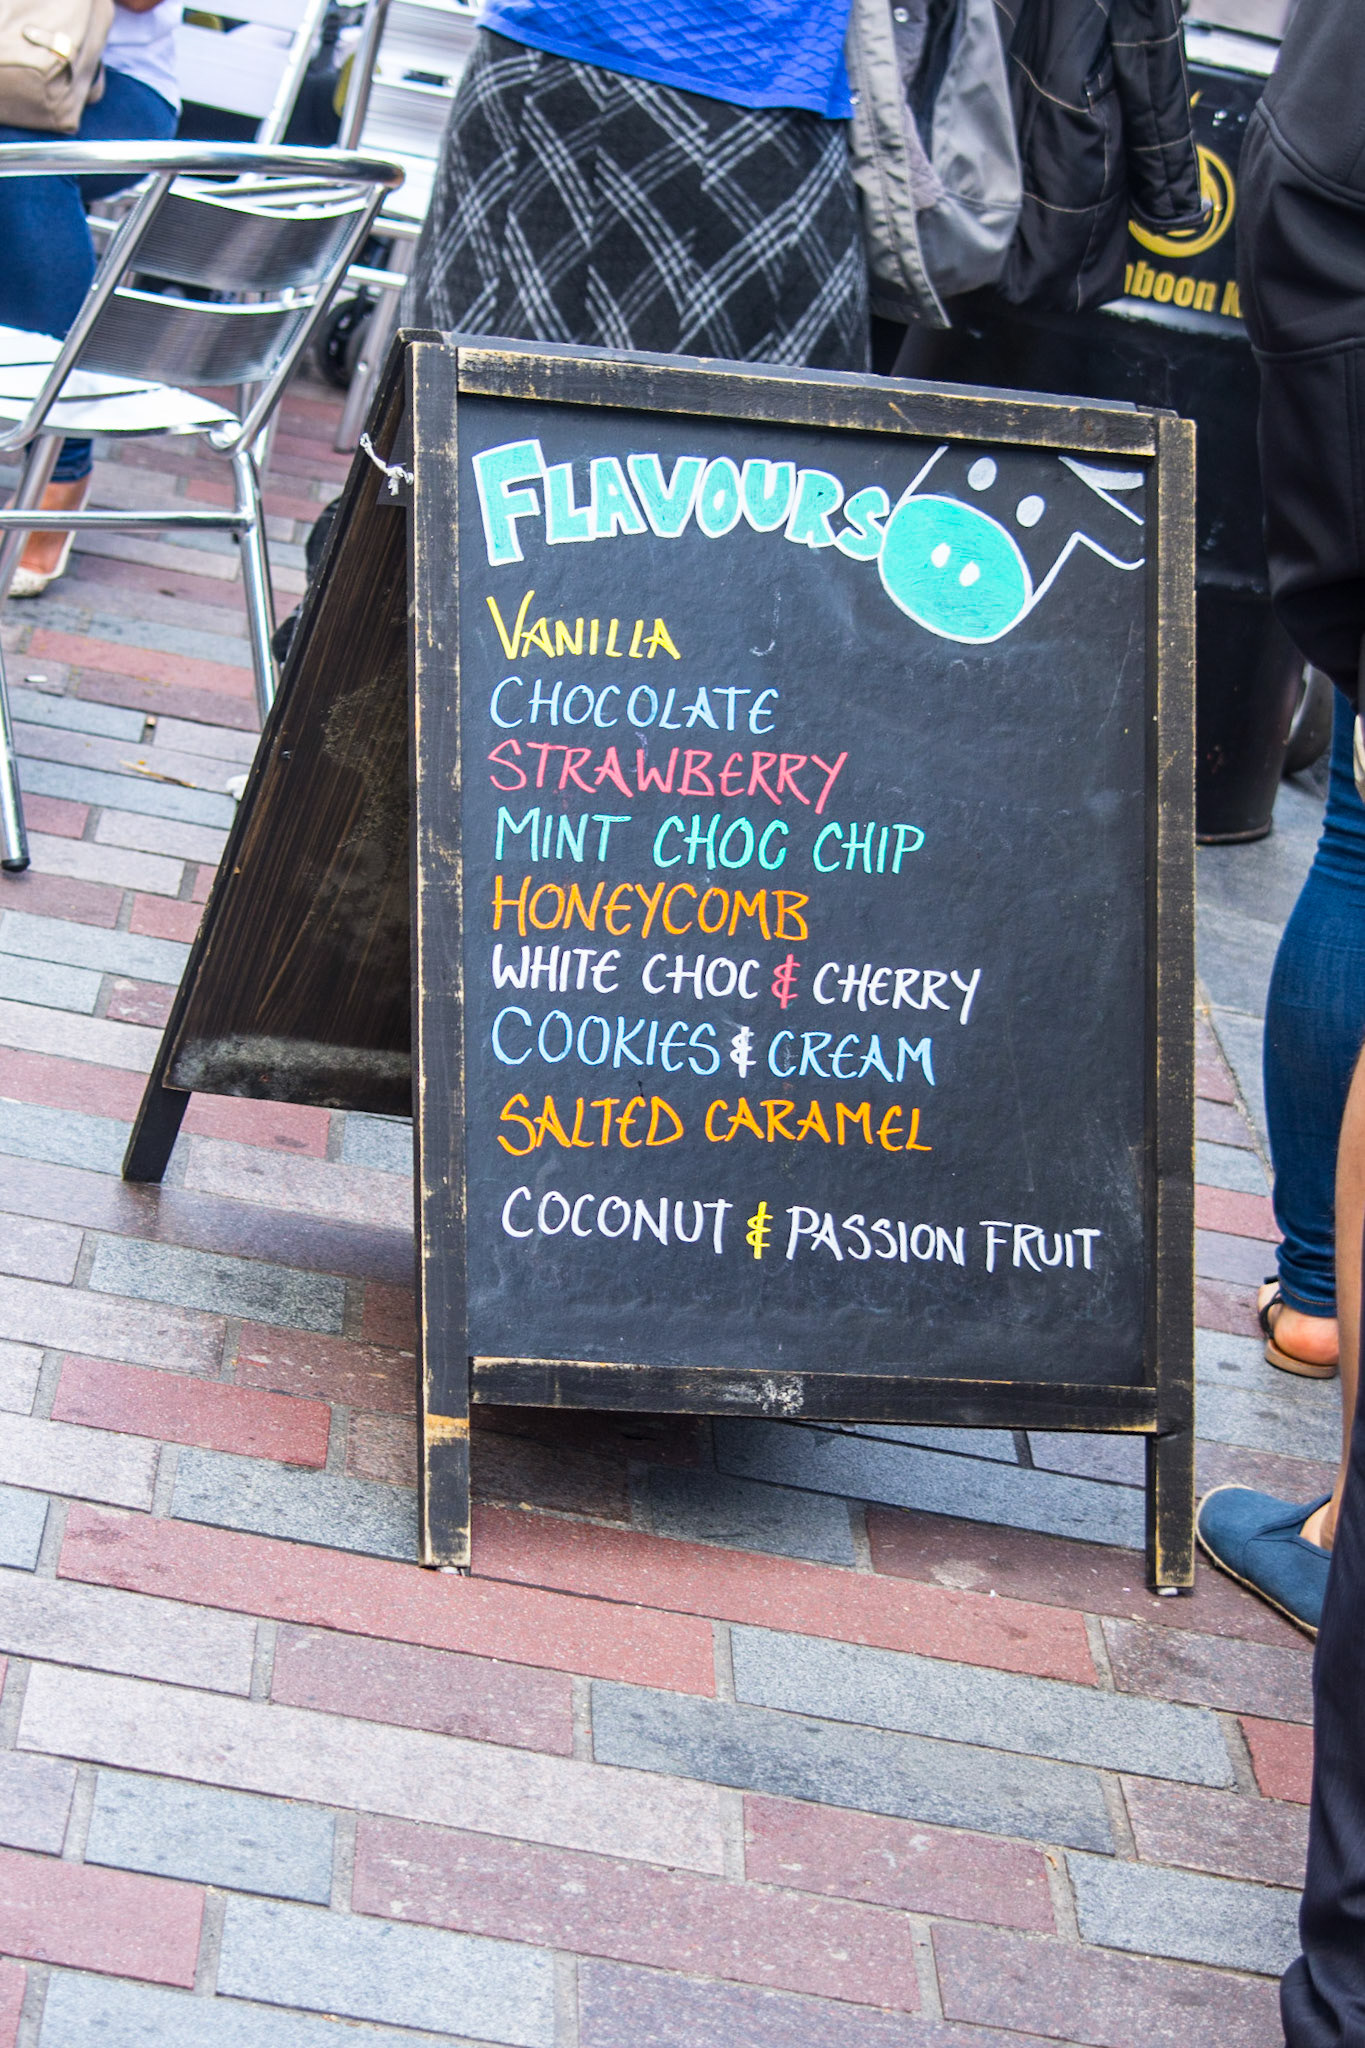 FLAVOURS
VANILLA
CHOCOLATE
STRAWBERRY
MINT CHOC CHIP
HONEYCOMB
WHITE CHOC & CHERRY
COOKIES & CREAM
SALTED CARAMEL
COCONUT & PASSION FRUIT